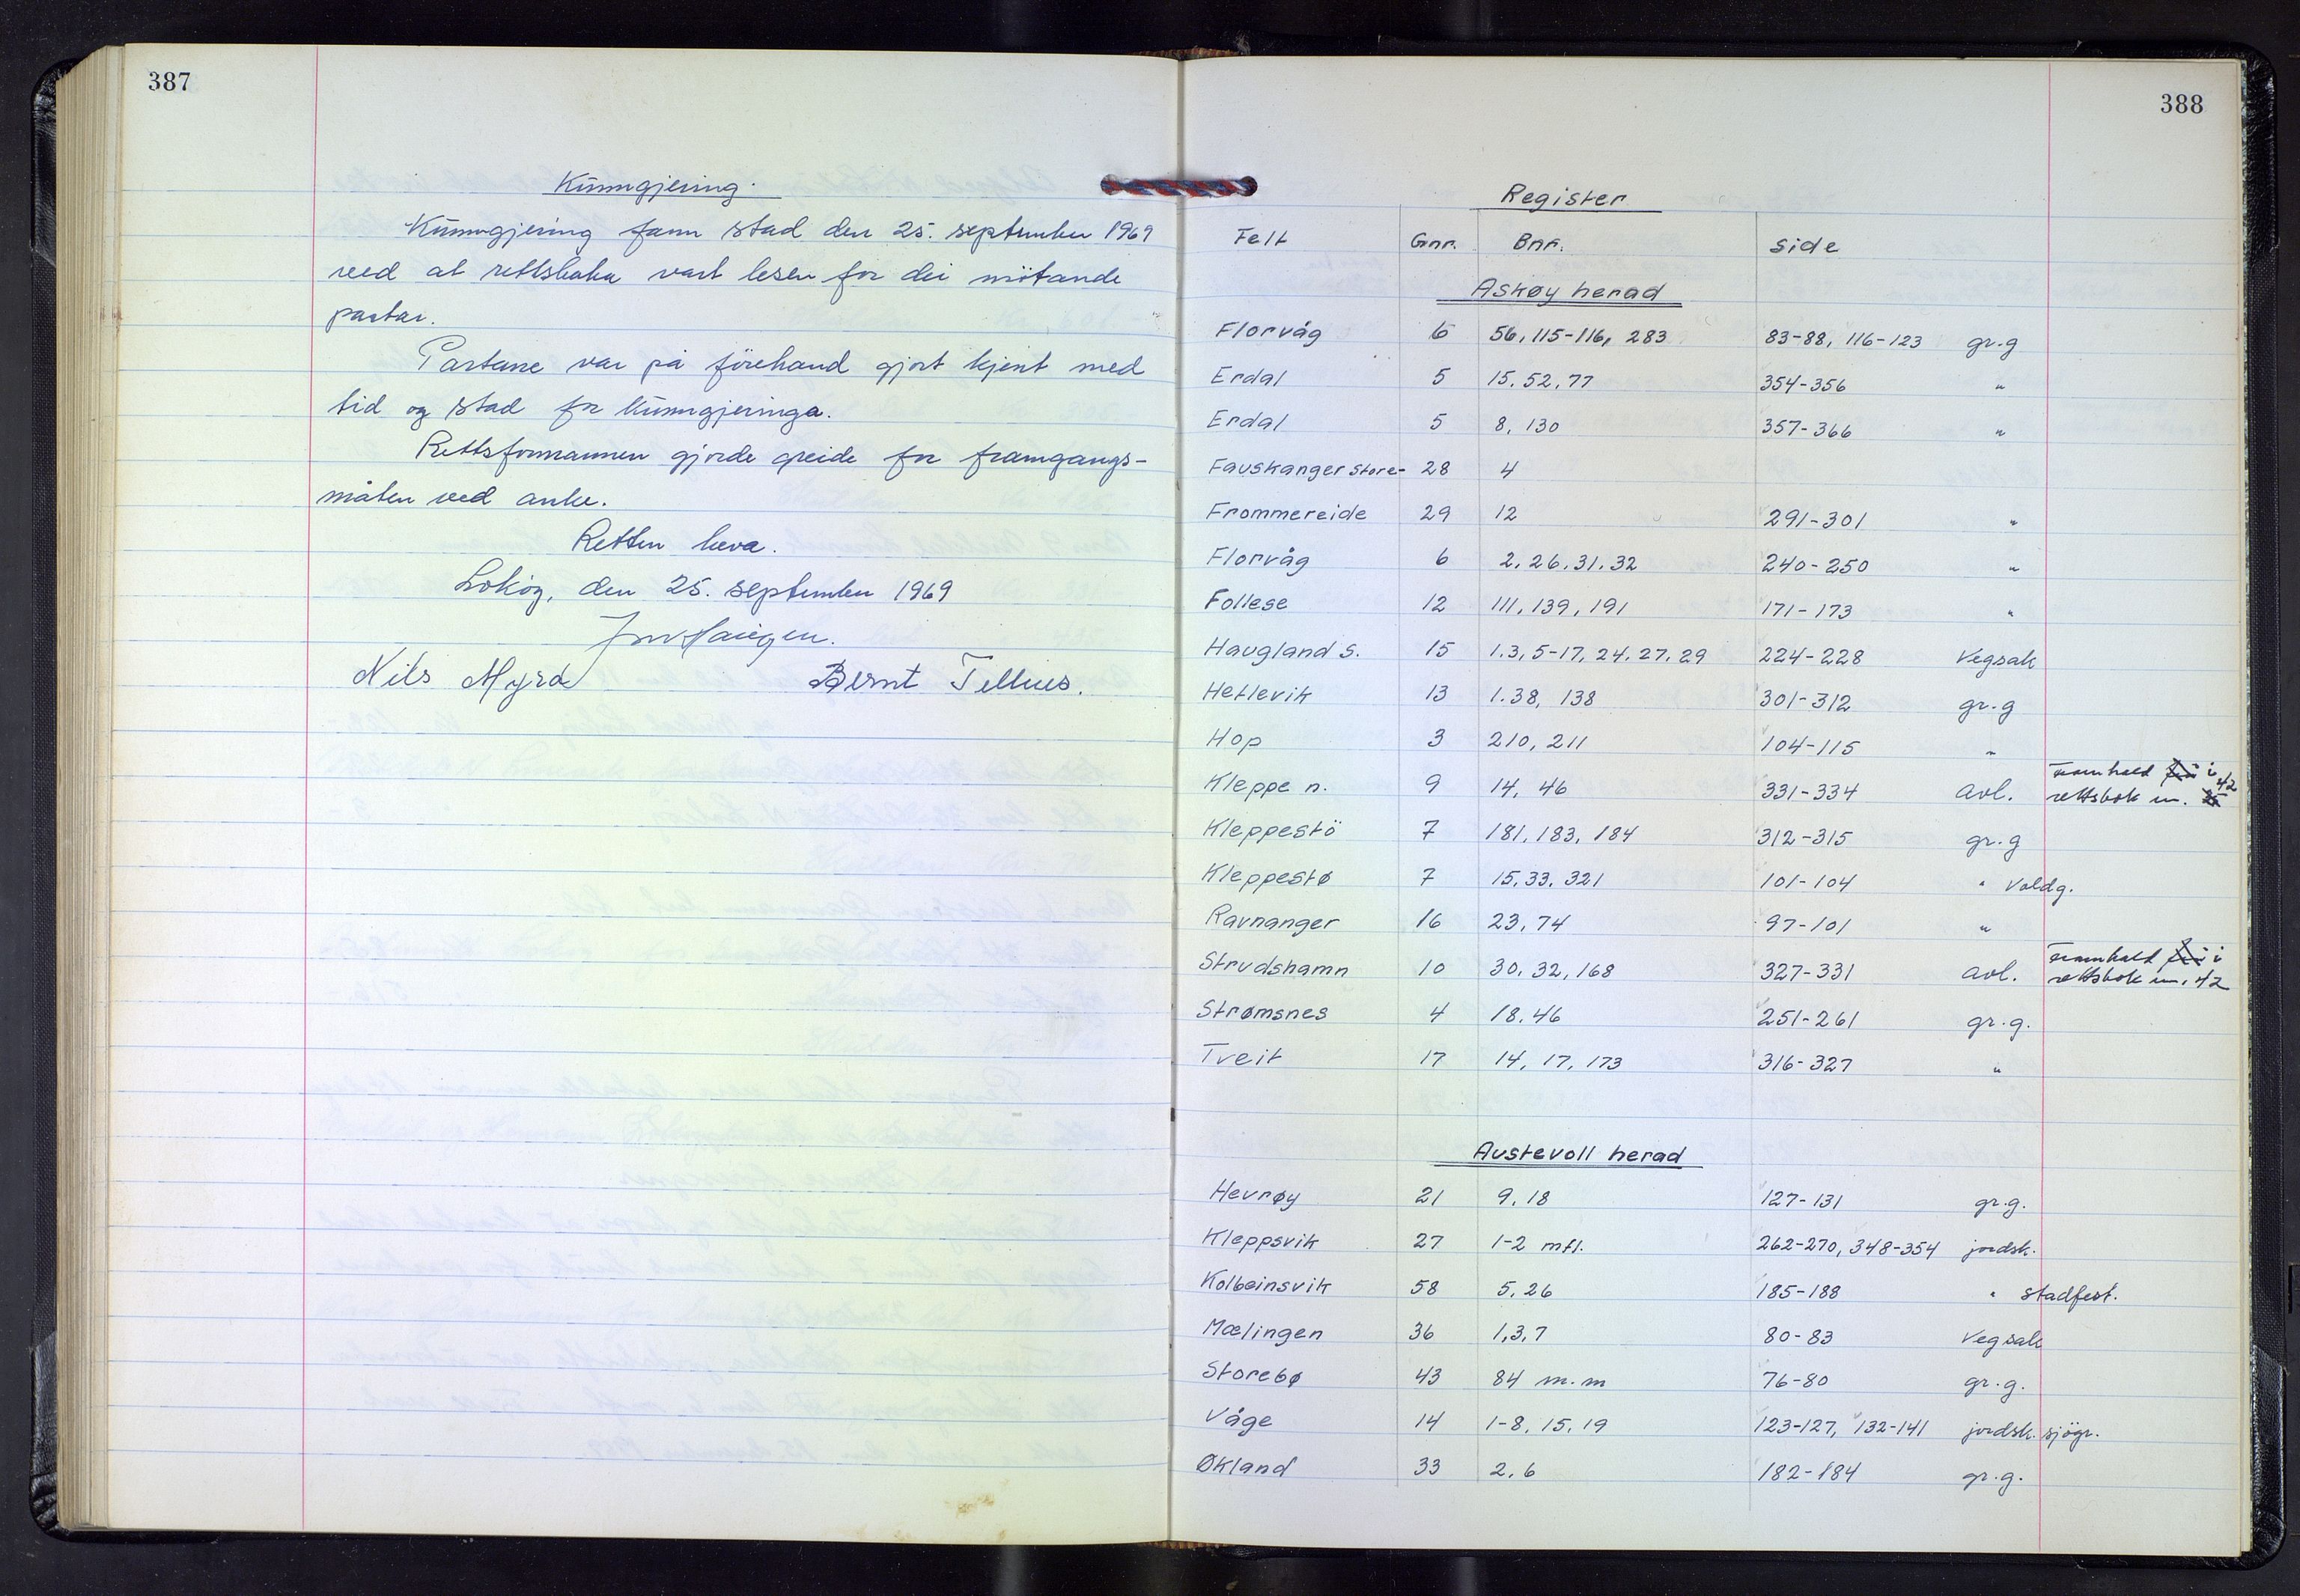 387
Kunngjering.
Kunngjering fann stad den 25. september 1969
ved at rettsboka vart lesen for dei møtande
partar.
Partane var på førehand gjort kjent med
tid og stad for kunngjeringa.
Rettsformannen gjorde greide for framgangs-
måten ved anke.
Retten heva.
den 25. september 1969
Nils Myrd
Bernt Tellnes.
388
Register
Felt Gnr. Bnr. side
Askøy herad
Florvåg 6 56, 115-116, 283 83-88, 116-123 gr.g
Erdal 5 15, 52, 77 354-356 "
Erdal 5 8, 130 357-366 "
Fauskanger Store- 28 4
Frommereide 29 12 291-301 "
Florvåg 6 2, 26, 31, 32 240-250 "
Follese 12 111, 139, 191 171-173 "
Haugland s. 15 1.3, 5-17, 24, 27, 29 224-228 Vegsak
Hetlevik 13 1.38, 138 301-312 gr.g
Hop 3 210, 211 104-115 "
Kleppe n. 9 14, 46 331-334 avl. framhald i
rettsbok nr. 42
Kleppestö 7 181, 183, 184 312-315 gr.g
Kleppestø 7 15, 33, 321 101-104 " Voldg.
Ravnanger 16 23, 74 97-101 "
Strudshamn 10 30, 32, 168 327-331 avl. framhald i
rettsbok nr. 42
Strømsnes 4 18, 46 251-261 gr.g.
Tveit 17 14, 17, 173 316-327 "
Austevoll herad
Hevrøy 21 9, 18 127-131 gr.g.
Kleppsvik 27 1-2 mfl. 262-270, 348-354 jordsk.
Kolbeinsvik 58 5, 26 185-188 " stadfest.
Mælingen 36 1, 3, 7 80-83 Vegsak
Storebø 43 84 m.m 76-80 gr.g.
Våge 14 1-8, 15, 19 123-127, 132-141 jordsk. sjögr.
Økland 33 2, 6 182-184 gr.g.